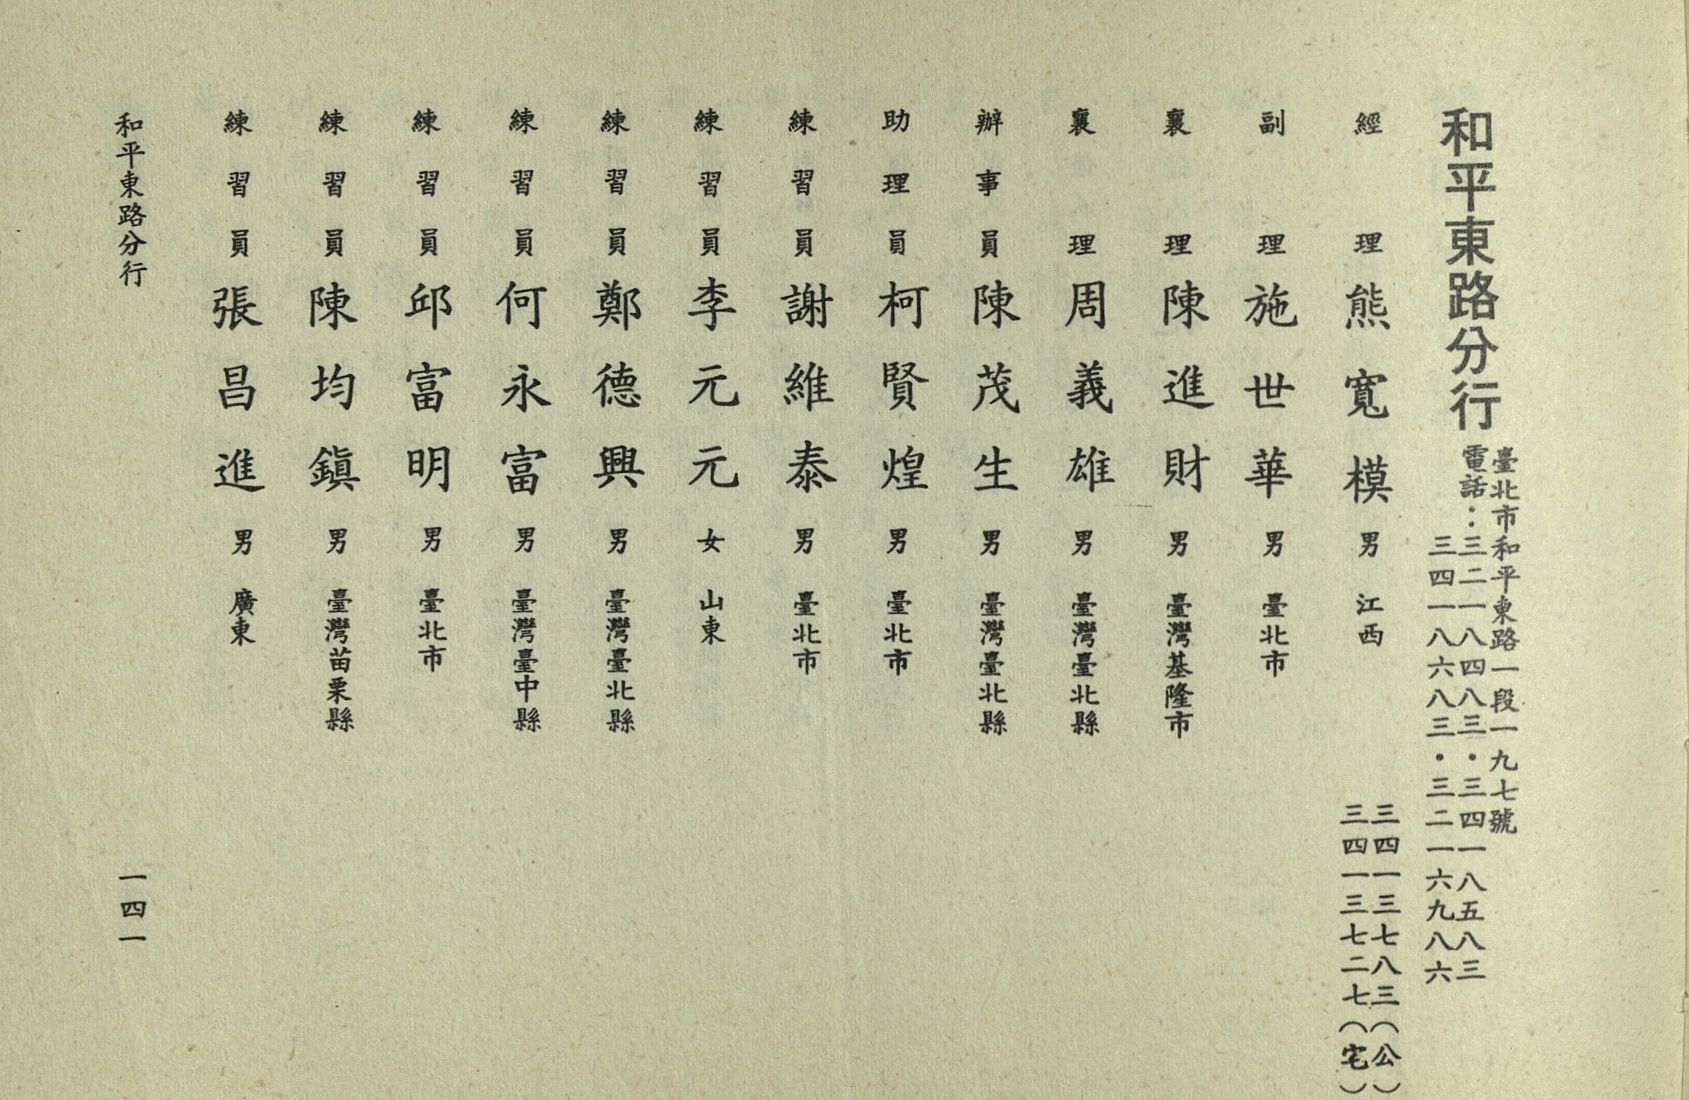 和平東路分行
臺北市和平東路一段一九七號
電話：三二一八四八三・三四一八五八三
三四一八六八三・三二一六九八六
經理 熊寬模 男 江西
三四一三七八三（公）
三四一三七二七（宅）
副理 施世華 男 臺北市
襄理 陳進財 男 臺灣基隆市
襄理 周義雄 男 臺灣臺北縣
辦事員 陳茂生 男 臺灣臺北縣
助理員 柯賢煌 男 臺北市
練習員 謝維泰 男 臺北市
練習員 李元元 女 山東
練習員 鄭德興 男 臺灣臺北縣
練習員 何永富 男 臺灣臺中縣
練習員 邱富明 男 臺北市
練習員 陳均鎮 男 臺灣苗栗縣
練習員 張昌進 男 廣東
和平東路分行
一四一